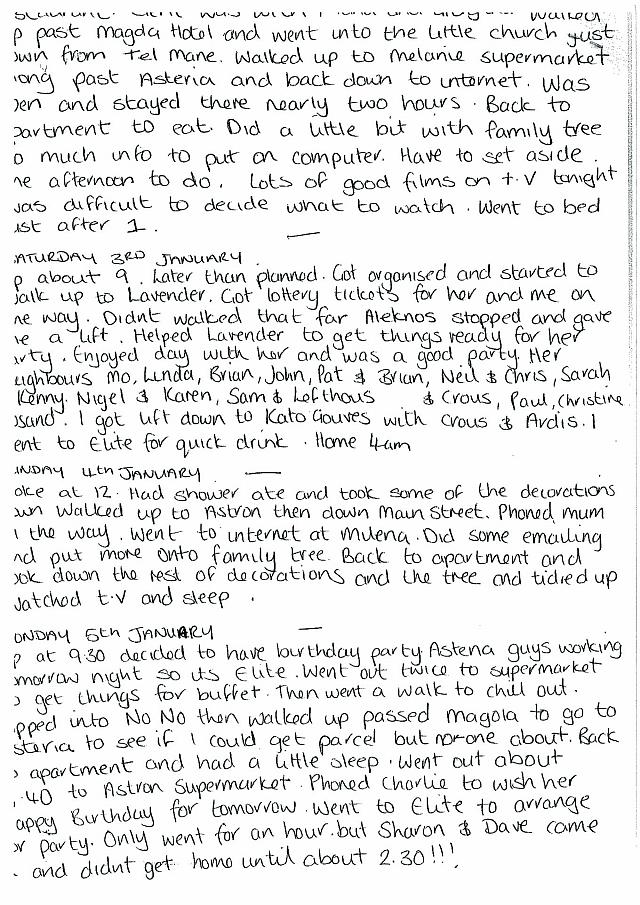 p past Magda Hotel and went into the little church just
own from Tel Mane. Walked up to Melanie supermarket
long past Asteria and back down to internet. Was
pen and stayed there nearly two hours. Back to
partment to eat. Did a little bit with family tree
o much info to put on computer. Have to set aside.
ne afternoon to do. Lots of good films on t.v tonight
was difficult to decide what to watch. Went to bed
ust after 1.
ATURDAY 3RD JANUARY.
p about 9. Later than planned. Got organised and started to
walk up to Lavender. Got lottery tickets for her and me on
he way. Didnt walked that far Aleknos stopped and gave
me a lift. Helped Lavender to get things ready for her
arty. Enjoyed day with her and was a good party. Her
eighbours Mo, Linda, Brian, John, Pat & Brian, Neil & Chris, Sarah
Kenny. Nigel & Karen, Sam & Lefthous & Crous, Paul, Christine
ssand. I got lift down to Kato Gouves with Crous & Ardis. I
ent to Elite for quick drink. Home 4am
UNDAY 4th JANUARY.
oke at 12. Had shower ate and took some of the decorations
own Walked up to Astron then down Main Street. Phoned mum
n the way. Went to internet at Milena. Did some emailing
nd put more onto family tree. Back to apartment and
ook down the rest of decorations and the tree and tidied up
Watched t.v and sleep.
ONDAY 5th JANUARY
p at 9.30 decided to have birthday party. Asteria guys working
omorrow night so its Elite. Went out twice to supermarket
o get things for buffet. Then went a walk to chill out.
opped into No No then walked up passed Magola to go to
steria to see if I could get parcel but no-one about. Back
o apartment and had a little sleep. Went out about
.40 to Astron Supermarket. Phoned Charlie to wish her
appy Birthday for tomorrow. Went to Elite to arrange
or party. Only went for an hour but Sharon & Dave came
. and didnt get home until about 2.30!!!